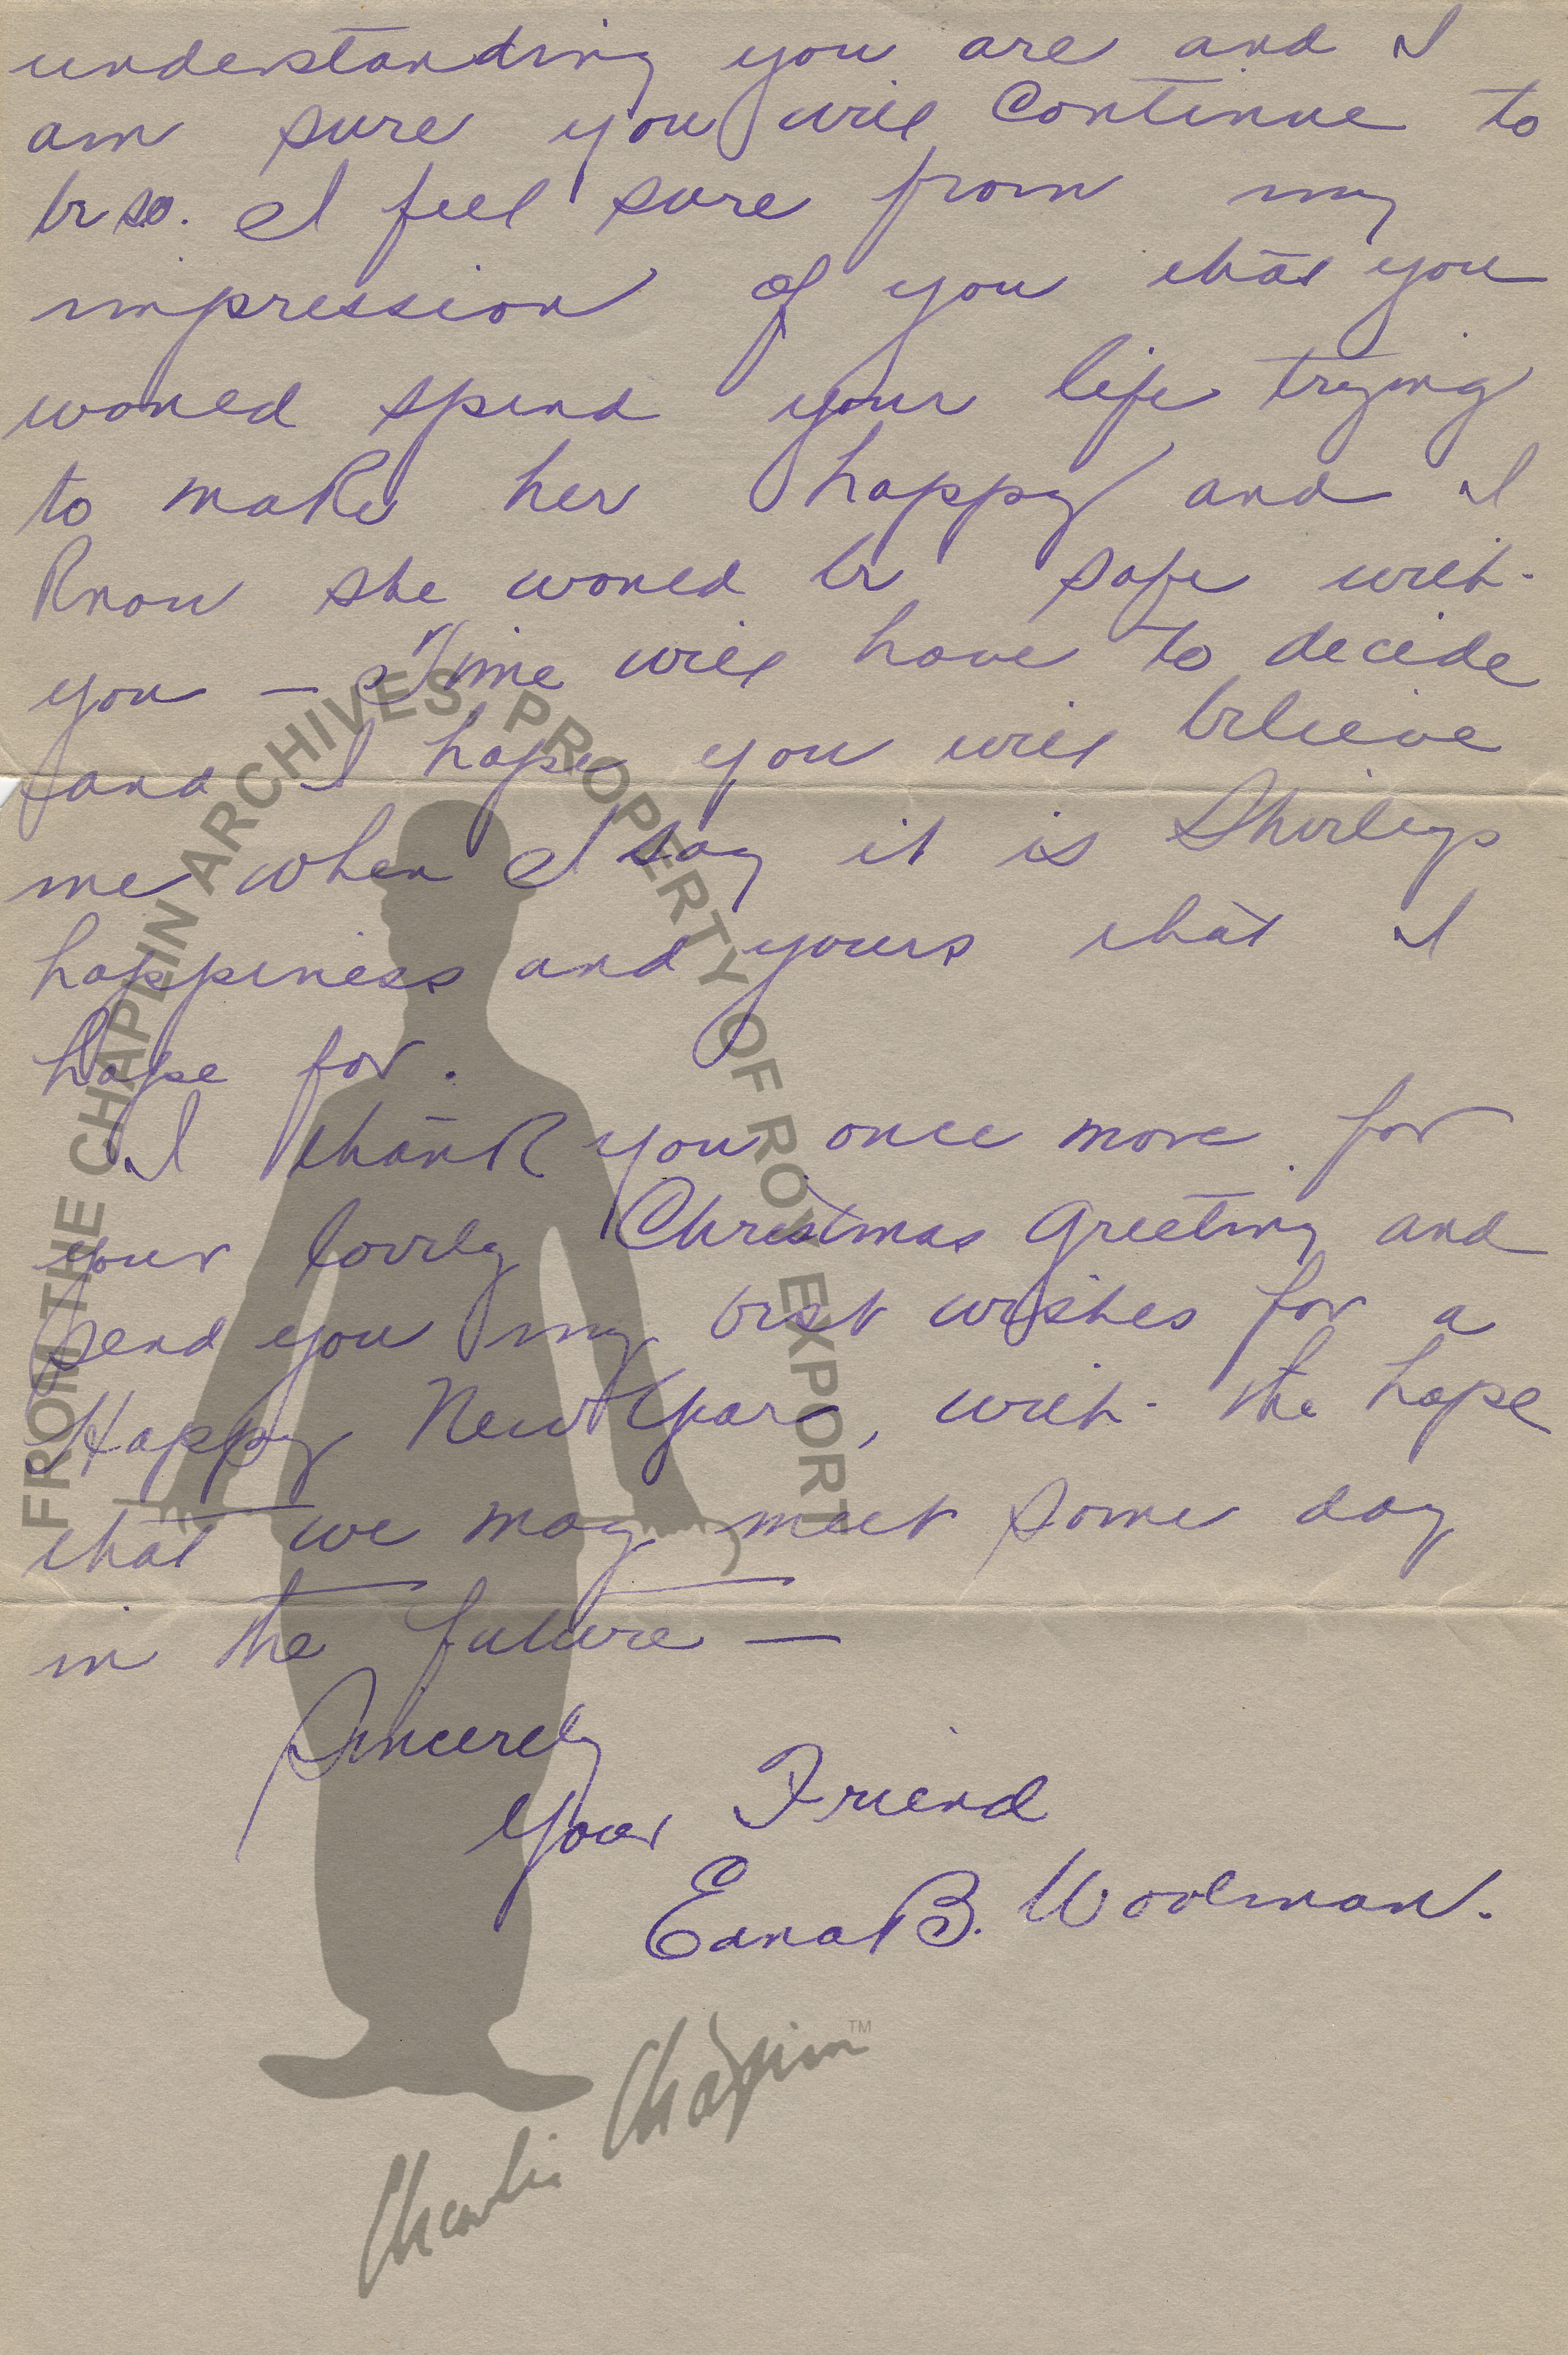 understanding you are and I
am sure you will Continue to
be so. I feel sure from my
impression of you that you
would spend your life trying
to make her happy and I
know she would be safe with
you — Time will have to decide
and I hope you will believe
me when I say it is Shirleys
happiness and yours that I
hope for.
I thank you once more for
your lovely Christmas Greeting and
send you my best wishes for a
Happy New Year, with the hope
that we may meet some day
in the future —
Sincerely
Your Friend
Edna B. Woolman.
FROM THE CHAPLIN ARCHIVES, PROPERTY OF ROY EXPORT
Charlie Chaplin™